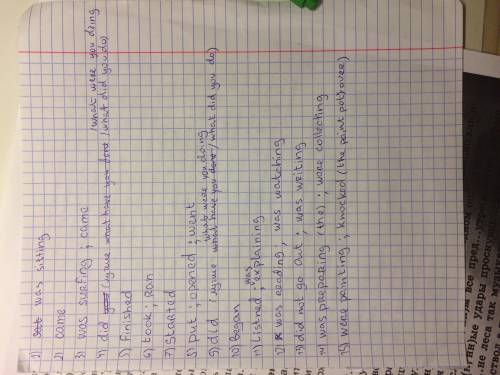 1) was sitting
2) came
3) was surfing ; came
/what were you doing
4) did (думаю what have you done /what did you do)
5) finished
6) took ; ran
7) started
8) put ; opened ; went
what were you doing
9) did (думаю what have you done / what did you do)
10) Began
11) listned ; was explaining
12) was reading ; was watching
13) did not go out ; was writing
14) was preparing (the) ; were collecting
15) were painting ; knocked (the paint pot) over)
все пред
ные удары
не леса так